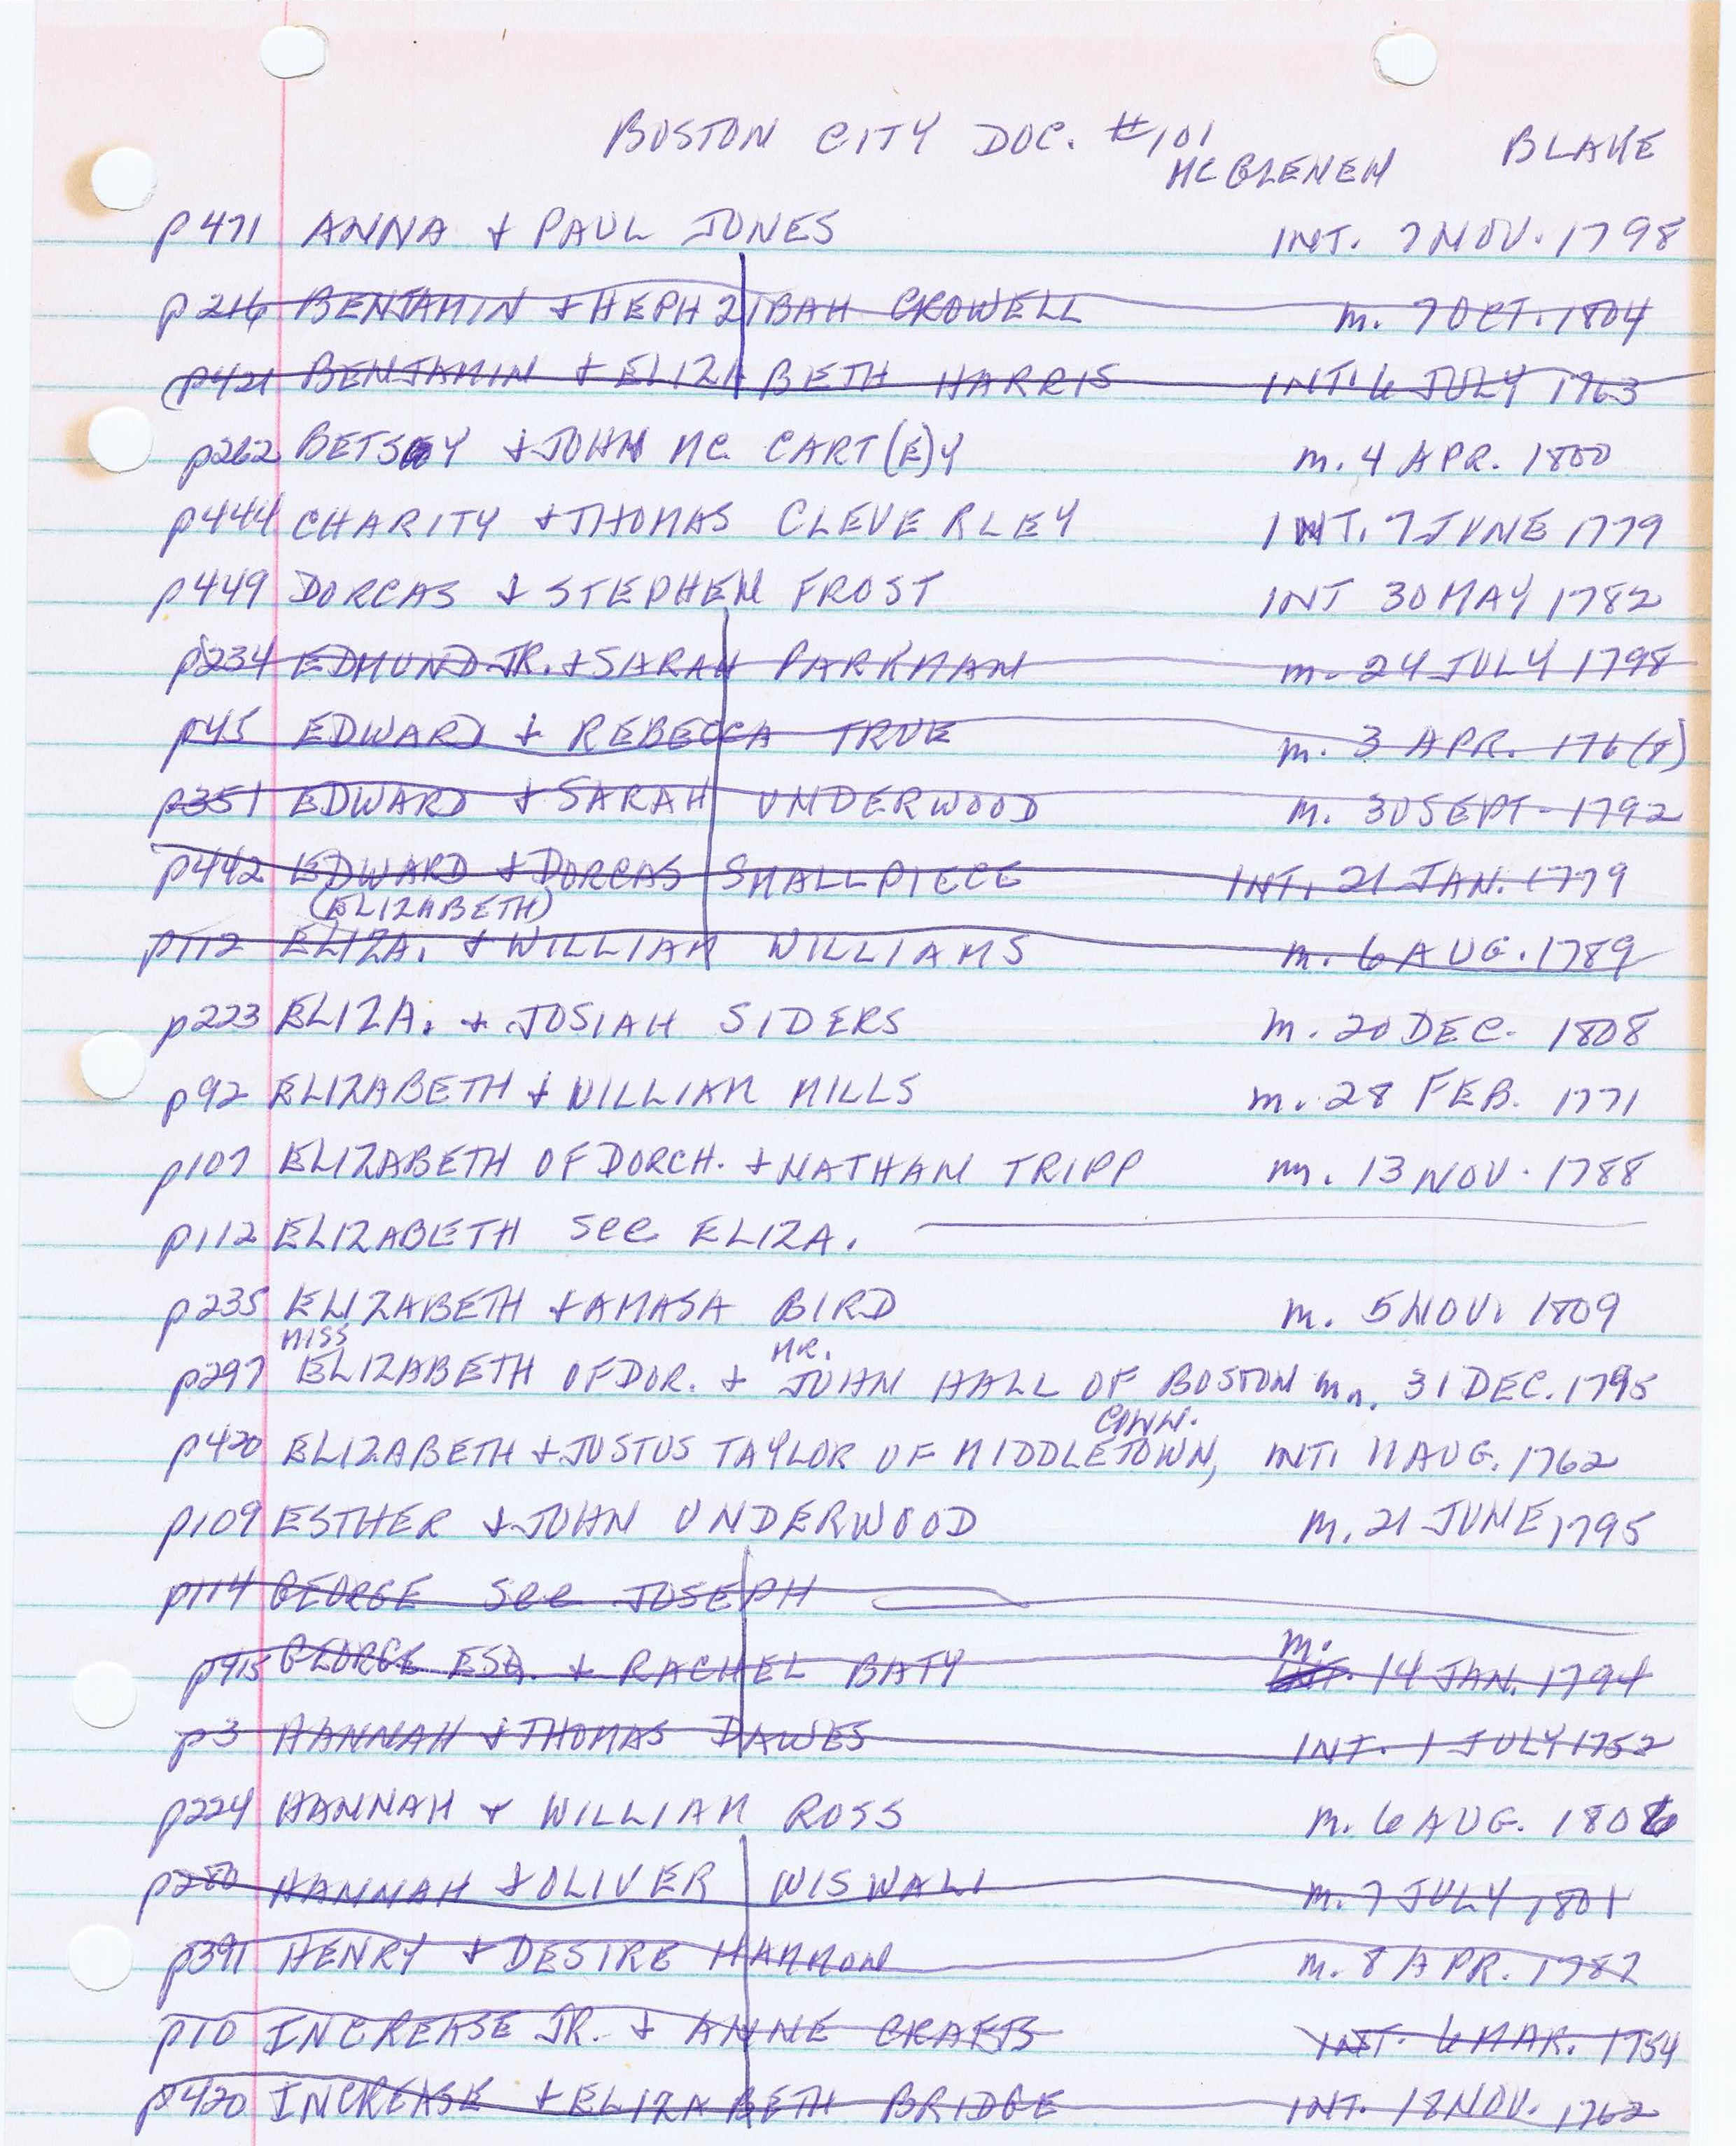 BOSTON CITY DOC. #101 BLAKE
MCGLENEN
p471 ANNA + PAUL JONES INT. 7 NOV. 1798
p216 BENJAMIN + HEPHZIBAH CROWELL m. 7 OCT. 1804
(p421 BENJAMIN + ELIZABETH HARRIS INT. 6 JULY 1763
p262 BETSEY + JOHN MC CART(E)Y m. 4 APR. 1800
p444 CHARITY + THOMAS CLEVERLEY INT. 7 JUNE 1779
p449 DORCAS + STEPHEN FROST INT 30 MAY 1782
p234 EDMUND JR. + SARAH PARKMAN m. 24 JULY 1798
p45 EDWARD + REBECCA TRUE m. 3 APR. 176()
p351 EDWARD + SARAH UNDERWOOD m. 30 SEPT - 1792
p442 EDWARD + DORCAS SMALLPIECE INT. 21 JAN. 1779
(ELIZABETH)
p112 ELIZA. + WILLIAM WILLIAMS m. 6 AUG. 1789
p223 ELIZA. + JOSIAH SIDERS m. 20 DEC. 1808
p92 ELIZABETH + WILLIAM MILLS m. 28 FEB. 1771
p107 ELIZABETH OF DORCH. + NATHAN TRIPP m. 13 NOV. 1788
p112 ELIZABETH see ELIZA.
p235 ELIZABETH + AMASA BIRD m. 5 NOV. 1809
MISS MR.
p297 ELIZABETH OF DOR. + JOHN HALL OF BOSTON m. 31 DEC. 1795
CONN.
p420 ELIZABETH + JUSTUS TAYLOR OF MIDDLETOWN, INT. 11 AUG. 1762
p109 ESTHER + JOHN UNDERWOOD m. 21 JUNE 1795
p114 GEORGE see JOSEPH
m.
p415 GEORGE ESQ. + RACHEL BATY INT. 14 JAN. 1794
p3 HANNAH + THOMAS DAWES INT. 1 JULY 1752
p224 HANNAH + WILLIAM ROSS m. 6 AUG. 1806
p280 HANNAH + OLIVER WISWALL m. 7 JULY 1801
p391 HENRY + DESIRE HAMMON m. 8 APR. 1787
p10 INCREASE JR. + ANNE CRAFTS INT. 6 MAR. 1754
p420 INCREASE + ELIZABETH BRIDGE INT. 18 NOV. 1762